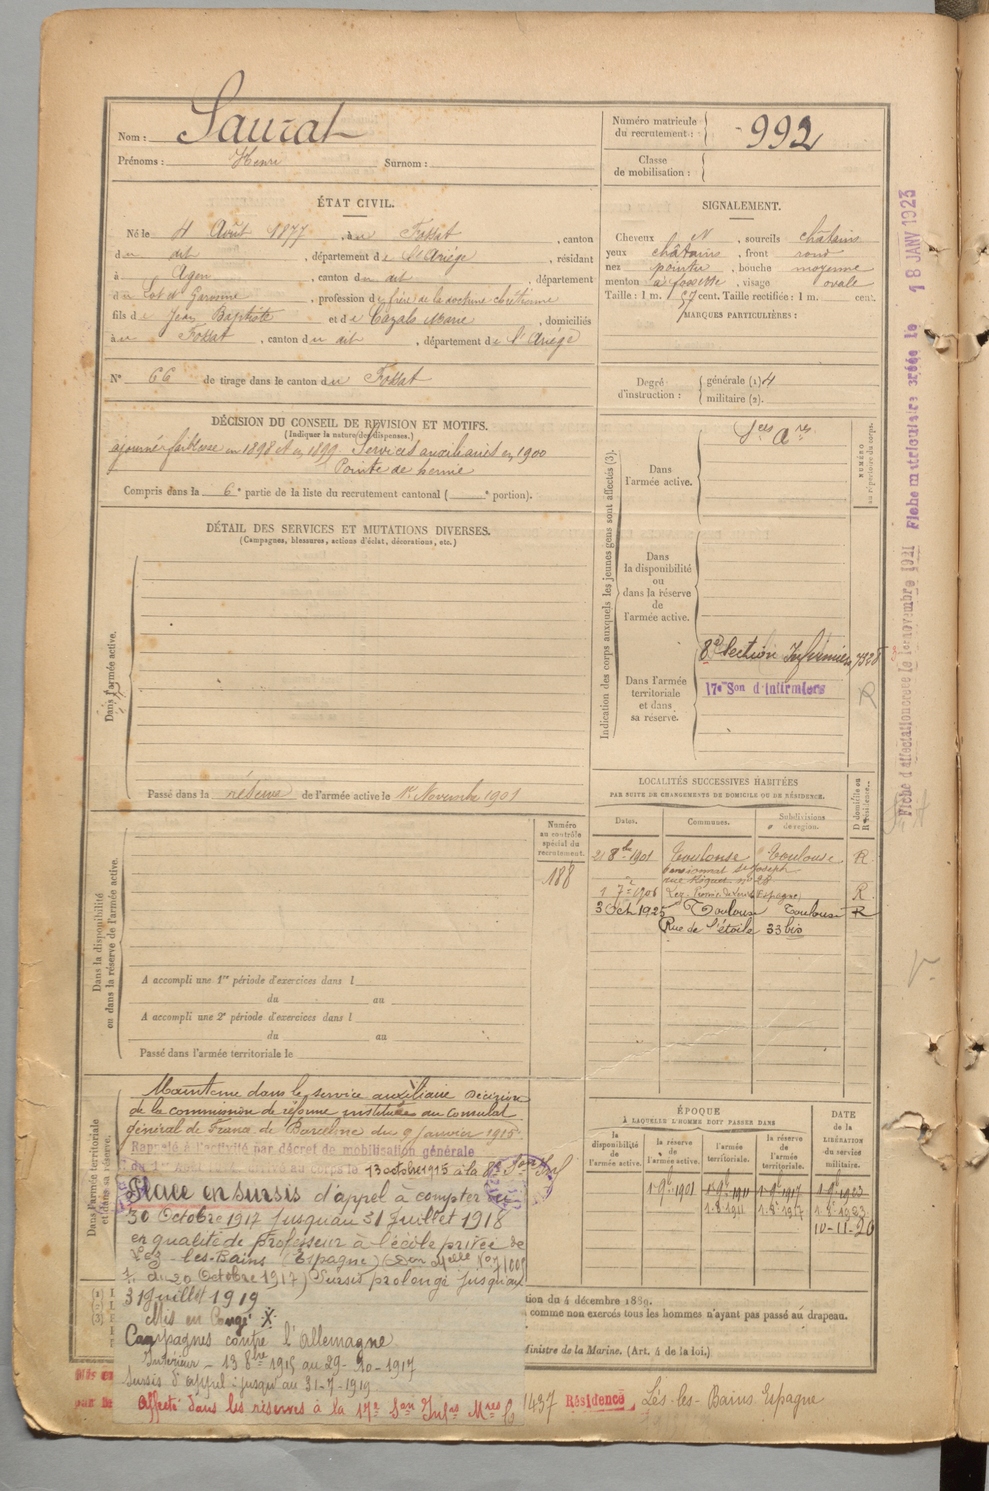 Nom : Saurat
Prénoms : Henri Surnom :
Numéro matricule du recrutement : 992
Classe de mobilisation :
ÉTAT CIVIL.
Né le 4 Août 1877, à u Fossat, canton
du dit, département de l'Ariège, résidant
à Agen, canton du dit, département
du Lot et Garonne, profession de frère de la doctrine chrétienne
fils de Jean Baptiste et de Cazals Marie, domiciliés
à u Fossat, canton du dit, département de l'Ariège
N° 66 de tirage dans le canton du Fossat
SIGNALEMENT.
Cheveux N, sourcils chatains
yeux châtains, front rond
nez pointu, bouche moyenne
menton à fossette, visage ovale
Taille : 1 m. 57 cent. Taille rectifiée : 1 m. cent.
MARQUES PARTICULIÈRES :
Degré d'instruction : générale (1) 4
militaire (2).
DÉCISION DU CONSEIL DE REVISION ET MOTIFS.
(Indiquer la nature des dispenses.)
ajourné faiblesse en 1898 et en 1899 Services auxiliaires en 1900
Pointe de hernie
Compris dans la 6e partie de la liste du recrutement cantonal ( e portion).
DÉTAIL DES SERVICES ET MUTATIONS DIVERSES.
(Campagnes, blessures, actions d'éclat, décorations, etc.)
Dans l'armée active.
Passé dans la réserve de l'armée active le 1er Novembre 1901
Indication des corps auxquels les jeunes gens sont affectés (3).
NUMÉRO au répertoire du corps.
Dans l'armée active.
Sces Ares
Dans la disponibilité ou dans la réserve de l'armée active.
Dans l'armée territoriale et dans sa réserve.
8e Section Infirmiers
17e Son d'Infirmiers
R
Fiche d'affectation créée le 1er novembre 1921 Fiche matriculaire créée le 18 JANV 1923
LOCALITÉS SUCCESSIVES HABITÉES
PAR SUITE DE CHANGEMENTS DE DOMICILE OU DE RÉSIDENCE.
Dates. Communes. Subdivisions de région. D domicile ou R résidence.
21 8bre 1901 Toulouse Toulouse R
pensionnat St Joseph
rue Riquet n° 28
1 7bre 1906 Lez Espagne R
3 Oct 1925 Toulouse Toulouse R
Rue de l'étoile 33 bis
Dans la disponibilité ou dans la réserve de l'armée active.
Numéro au contrôle spécial du recrutement.
188
A accompli une 1re période d'exercices dans l
du au
A accompli une 2e période d'exercices dans l
du au
Passé dans l'armée territoriale le
Dans l'armée territoriale et dans sa réserve.
Maintenu dans le service auxiliaire Décision
de la commission de réforme instituée au Consulat
général de France de Barcelone du 9 Janvier 1915
Rappelé à l'activité par décret de mobilisation générale
du 1er Août 1914 Arrivé au corps le 13 octobre 1915 à la 8e Son Inf
Placé en sursis d'appel à compter du
30 Octobre 1917 jusqu'au 31 Juillet 1918
en qualité de professeur à l'école privée de
Lez-les-Bains (Espagne)
du 20 Octobre 1917) Sursis prolongé jusqu'au
31 Juillet 1919
Mis en Congé X
Campagnes contre l'Allemagne
Intérieur - 13 8bre 1915 au 29-10-1917
Sursis d'appel : jusqu'au 31-7-1919
Affecté dans les réserves à la 17e Son Infres Mres
ÉPOQUE
À LAQUELLE L'HOMME DOIT PASSER DANS
DATE de la LIBÉRATION du service militaire.
la disponibilité de l'armée active. la réserve de l'armée active. l'armée territoriale. la réserve de l'armée territoriale.
1-9e 1901 1-9e 1911 1-9e 1917 1-9e 1923
1.8e 1911 1.8e 1917 1.8e 1923
10-11-26
tion du 4 décembre 1889.
comme non exercés tous les hommes n'ayant pas passé au drapeau.
Ministre de la Marine. (Art. 4 de la loi.)
1437 Résidence Lés-les-Bains Espagne